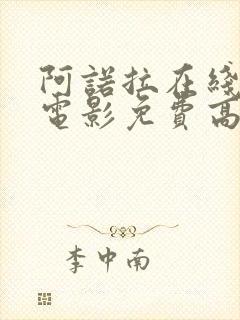 阿諾拉在綫
電影免費高
李中南